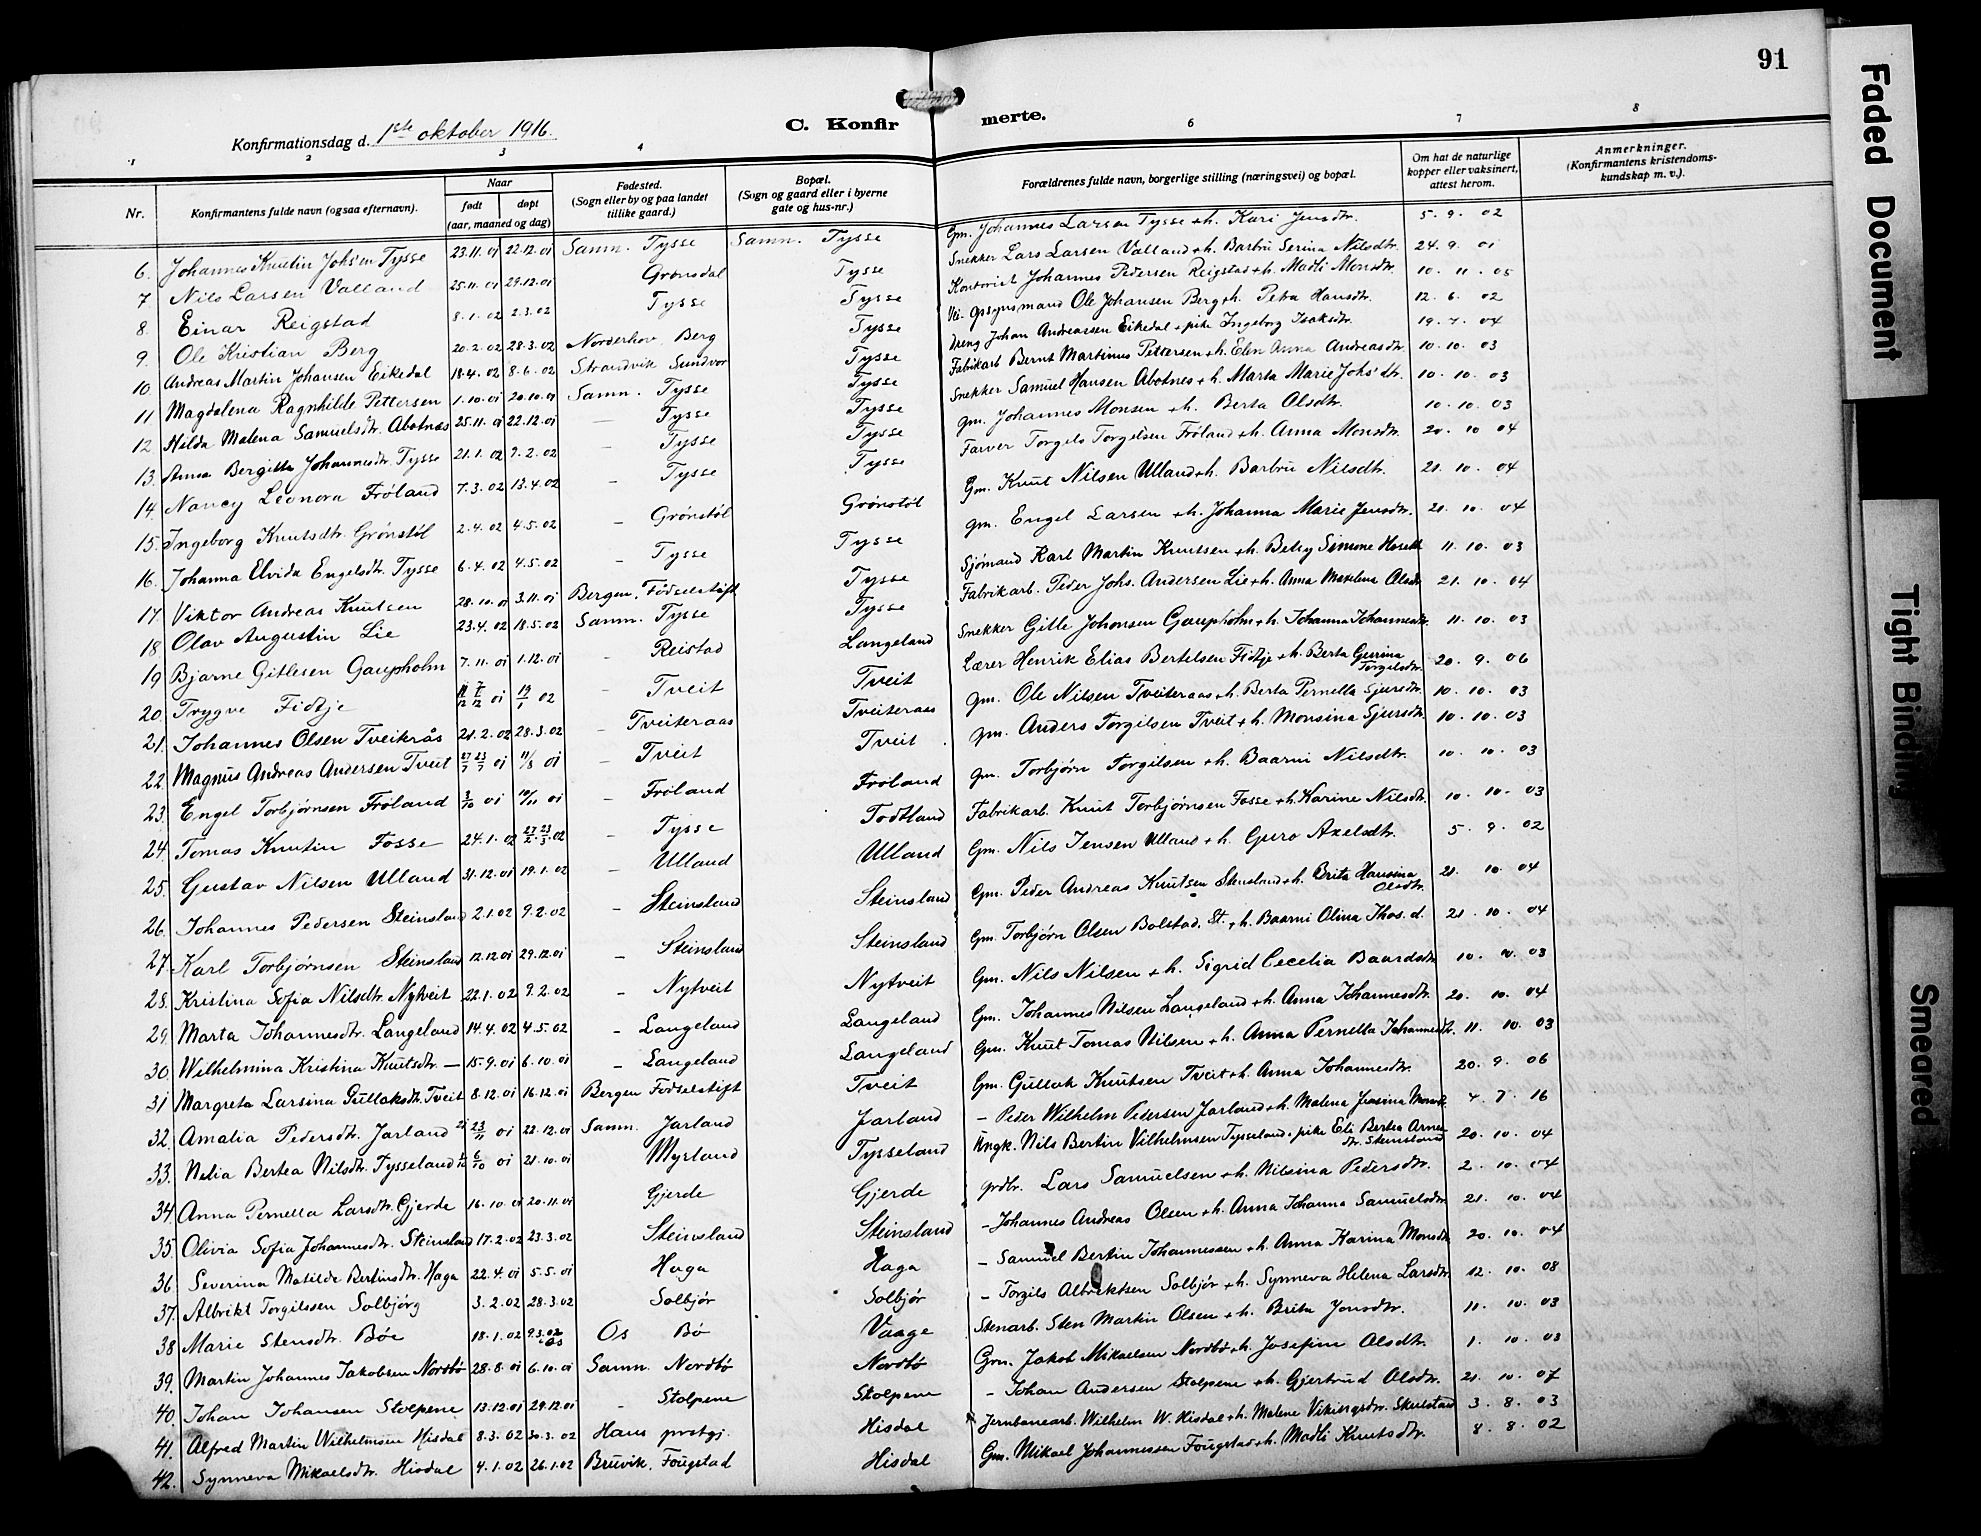 91
Konfirmationsdag d. 1ste oktober 1916.
C. Konfirmerte.
1 2 3 4 6 7 8
Nr. Konfirmantens fulde navn (ogsaa efternavn). Naar født døpt (aar, maaned og dag) Fødested. (Sogn eller by og paa landet tillike gaard.) Bopæl. (Sogn og gaard eller i byerne gate og hus-nr.) Forældrenes fulde navn, borgerlige stilling (næringsvei) og bopæl. Om hat de naturlige kopper eller vaksinert, attest herom. Anmerkninger. (Konfirmantens kristendomskundskap m. v.).
6. Johannes Knutin Johs'en Tysse 23.11.01 22.12.01 Samn. Tysse Samn. Tysse Gm. Johannes Larsen Tysse + h. Kari Jensdtr. 5. 9. 02
7 Nils Larsen Valland 25.11.01 29.12.01 Grønsdal Tysse Snekker Lars Larsen Valland + h. Barbru Serina Nilsdtr. 24. 9. 01
8. Einar Reigstad 8.1.02 2.3.02 Tysse Tysse Kontorist Johannes Pedersen Reigstad + h. Madli Monsdtr. 10. 11. 05
9. Ole Kristian Berg 20.2.02 28.3.02 Norderhov Berg Tysse Ole Johansen Berg + h. Petra Hansdtr. 12. 6. 02
10 Andreas Martin Johansen Eikedal 18.4.02 8.6.02 Strandvik Sundvor Tysse Dreng Johan Andreassen Eikedal + pike Ingeborg Isaksdtr. 19. 7. 04
11 Magdalena Ragnhilde Pettersen 1.10.01 20.10.01 Samn. Tysse Tysse Fabrikarb. Bernt Martinus Pettersen + h. Elen Anna Andreasdtr. 10. 10. 03
12 Hilda Malena Samuelsdtr. Abotnes 25.11.01 22.12.01 — Tysse Tysse Snekker Samuel Hansen Abotnes + h. Marta Marie Johs'dtr. 10. 10. 03
13. Anna Bergitta Johannesdtr. Tysse 21.1.02 9.2.02 - Tysse Tysse Gm. Johannes Monsen + h. Berta Olsdtr. 10. 10. 03
14. Nancy Leonora Frøland 7.3.02 13.4.02 - Tysse Tysse Farver Torgels Torgelsen Frøland + h. Anna Monsdtr. 20. 10 04
15. Ingeborg Knutsdtr. Grønstøl 2.4.02 4.5.02 - Grønstøl Grønstøl Gm. Knut Nilsen Ulland + h. Barbru Nilsdtr. 21. 10. 04
16. Johanna Elvida Engelsdtr. Tysse 6.4.02 4.5.02 - Tysse Tysse Gm. Engel Larsen + h. Johanna Marie Jensdtr. 21. 10. 04
17. Viktor Andreas Knutsen 28.10.01 3.11.01 Bergen. Fødselsstift. Tysse Sjømand Karl Martin Knutsen + h. Betsy Simone 11. 10. 03
18 Olav Augustin Lie 23.4.02 18.5.02 Samn. Tysse Tysse Fabrikarb. Peder Johs. Andersen Lie + h. Anna Olsdtr. 21. 10. 04
19 Bjarne Gitlesen Gaupholm 7.11.01 1.12.01 - Reistad Langeland Snekker Gitle Johansen Gaupholm + h. Johanna Johannesdtr. 11. 10. 03
20 Trygve Fidtje 01 19/1 02 - Tveit Tveit Lærer Henrik Elias Bertelsen Fidtje + h. Berta Torgilsdtr. 20. 9. 06
21. Johannes Olsen Tveitrås 21.2.02 28.3.02 - Tveiteraas Tveiteraas Gm. Ole Nilsen Tveiteraas + h. Berta Pernella Sjursdtr. 10. 10. 03
22. Magnus Andreas Andersen Tveit 01 11/8 01 - Tveit Tveit Gm. Anders Torgilsen Tveit + h. Monsina Sjursdtr. 10. 10. 03
23. Engel Torbjørnsen Frøland 3/10 01 10/11 01 - Frøland Frøland Gm. Torbjørn Torgilsen + h. Baarni Nilsdtr. 10. 10. 03
24. Tomas Knutin Fosse 24.1.02 02 - Tysse Todtland Fabrikarb. Knut Torbjørnsen Fosse + h. Karine Nilsdtr. 10. 10. 03
25. Gustav Nilsen Ulland 31.12.01 19.1.02 - Ulland Ulland Gm. Nils Jensen Ulland + h. Guro Axelsdtr. 5. 9. 02
26. Johannes Pedersen Steinsland 2.1.02 9.2.02 - Steinsland Steinsland Gm. Peder Andreas Knutsen Steinsland + h. Brita Hansina Olsdtr. 21. 10. 04
27. Karl Torbjørnsen Steinsland 12.12.01 29.12.01 - Steinsland Steinsland Gm. Torbjørn Olsen Bolstad, St. + h. Baarni Olina Thos. d. 21. 10. 04
28. Kristina Sofia Nilsdtr. Nytveit 22.1.02 9.2.02 - Nytveit Nytveit Gm. Nils Nilsen + h. Sigrid Cecelia Baardsdtr. 10. 10. 03
29. Marta Johannesdtr. Langeland 14.4.02 4.5.02 - Langeland Langeland Gm. Johannes Nilsen Langeland + h. Anna Johannesdtr. 20. 10. 04
30. Wilhelmina Kristina Knutsdtr. — 15.9.01 6.10.01 - Langeland Langeland Gm. Knut Tomas Nilsen + h. Anna Pernella Johannesdtr. 11. 10. 03
31 Margreta Larsina Gullaksdtr. Tveit 8.12.01 16.12.01 Bergen Fødselsstift Tveit Gm. Gullak Knutsen Tveit + h. Anna Johannesdtr. 20. 9. 06
32. Amalia Pedersdtr. Jarland 23/11 01 22.12.01 Samn. Jarland Jarland - Peder Wilhelm Pedersen Jarland + h. Malena 4. 7. 16
33. Nilia Bertea Nilsdtr. Tysseland 6/10 01 21.10.01 Myrland Tysseland Ungk. Nils Bertin Vilhelmsen Tysseland + pike Eli Bertea Arnedtr. Steinsland 20. 10. 04
34. Anna Pernella Larsdtr. Gjerde 16.10.01 20.11.01 Gjerde Gjerde Grdbr. Lars Samuelsen + h. Nilsina Pedersdtr. 2. 10. 04
35. Olivia Sofia Johannesdtr. Steinsland 17.2.02 23.3.02 Steinsland Steinsland - Johannes Andreas Olsen + h. Anna Johanna Samuelsdtr. 21. 10. 04
36 Severina Matilde Bertinsdtr. Haga 22.4.01 5.5.01 Haga Haga - Samuel Bertin Johannessen + h. Anna Karina Monsdtr. 20. 10. 04
37. Albrikt Torgilssen Solbjørg 3.2.02 28.3.02 Solbjør Solbjør - Torgils Albriktsen Solbjør + h. Synneva Helena Larsdtr. 12. 10. 08
38 Marie Stensdtr. Bøe 18.1.02 9.3.02 i Os Os Bø Vaage Stenarb. Sten Martin Olsen + h. Brita Jonsdtr. 11. 10. 03
39. Martin Johannes Jakobsen Nordbø 28.8.01 6.10.01 Samn. Nordbø Nordbø Gm. Jakob Mikaelsen Nordbø + h. Josefine Olsdtr. 1. 10. 03
40. Johan Johansen Stolpene 13.12.01 29.12.01 - Stolpene Stolpene - Johan Andersen Stolpene + h. Gjertrud Olsdtr. 21. 10. 07
41. Alfred Martin Wilhelmsen Hisdal 8.3.02 30.3.02 Haus prstgj. Hisdal Jernbanearb. Wilhelm W. Hisdal + h. Malene Vikingsdtr. Skulstad 3. 8. 03
42. Synneva Mikaelsdtr. Hisdal 4.1.02 26.1.02 Bruvik. Fougstad Hisdal Gm. Mikael Johannessen Fougstad + h. Madli Knutsdtr. 8. 8. 02
Faded Document
Tight Binding
Smeared